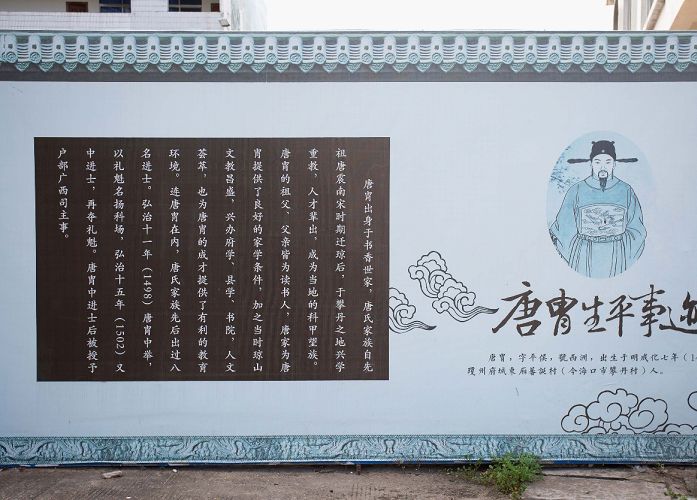 唐胄出身于书香世家，唐氏家族自先
祖唐震南宋时期迁琼后，于攀丹之地兴学
重教，人才辈出，成为当地的科甲望族。
唐胄的祖父、父亲皆为读书人，唐家为唐
胄提供了良好的家学条件，加之当时琼山
文教昌盛，兴办府学，县学、书院，人文
荟萃，也为唐胄的成才提供了有利的教育
环境。连唐胄在内，唐氏家族先后出过八
名进士。弘治十一年（1498）唐胄中举，
以礼魁名扬科场，弘治十五年（1502）又
中进士，再夺礼魁。唐胄中进士后被授予
户部广西司主事。
唐胄生平事迹
唐胄，字平侯，號西洲，出生于明成化七年（1
瓊州府城東厢善誕村（今海口市攀丹村）人。